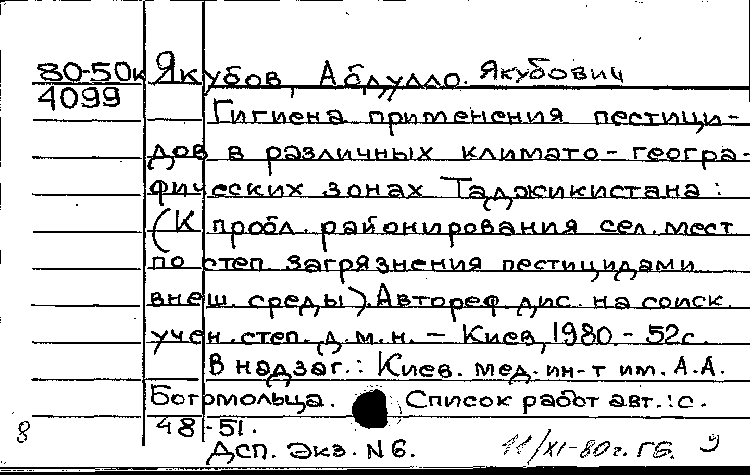 80-50к Якубов, Абдулло. Якубович
4099
Гигиена применения пестици-
дов в различных климато-геогра-
фических зонах Таджикистана :
(К пробл. районирования сел. мест
по степ. загрязнения пестицидами
внеш. среды). Автореф. дис. на соиск.
учен. степ. д.м.н. – Киев, 1980. - 52с.
В надзаг.: Киев. мед. ин-т им. А.А.
Богомольца. Список работ авт.: с.
48-51.
8
ДСП. Экз. N 6. 11/XI-80г. ГБ. 9